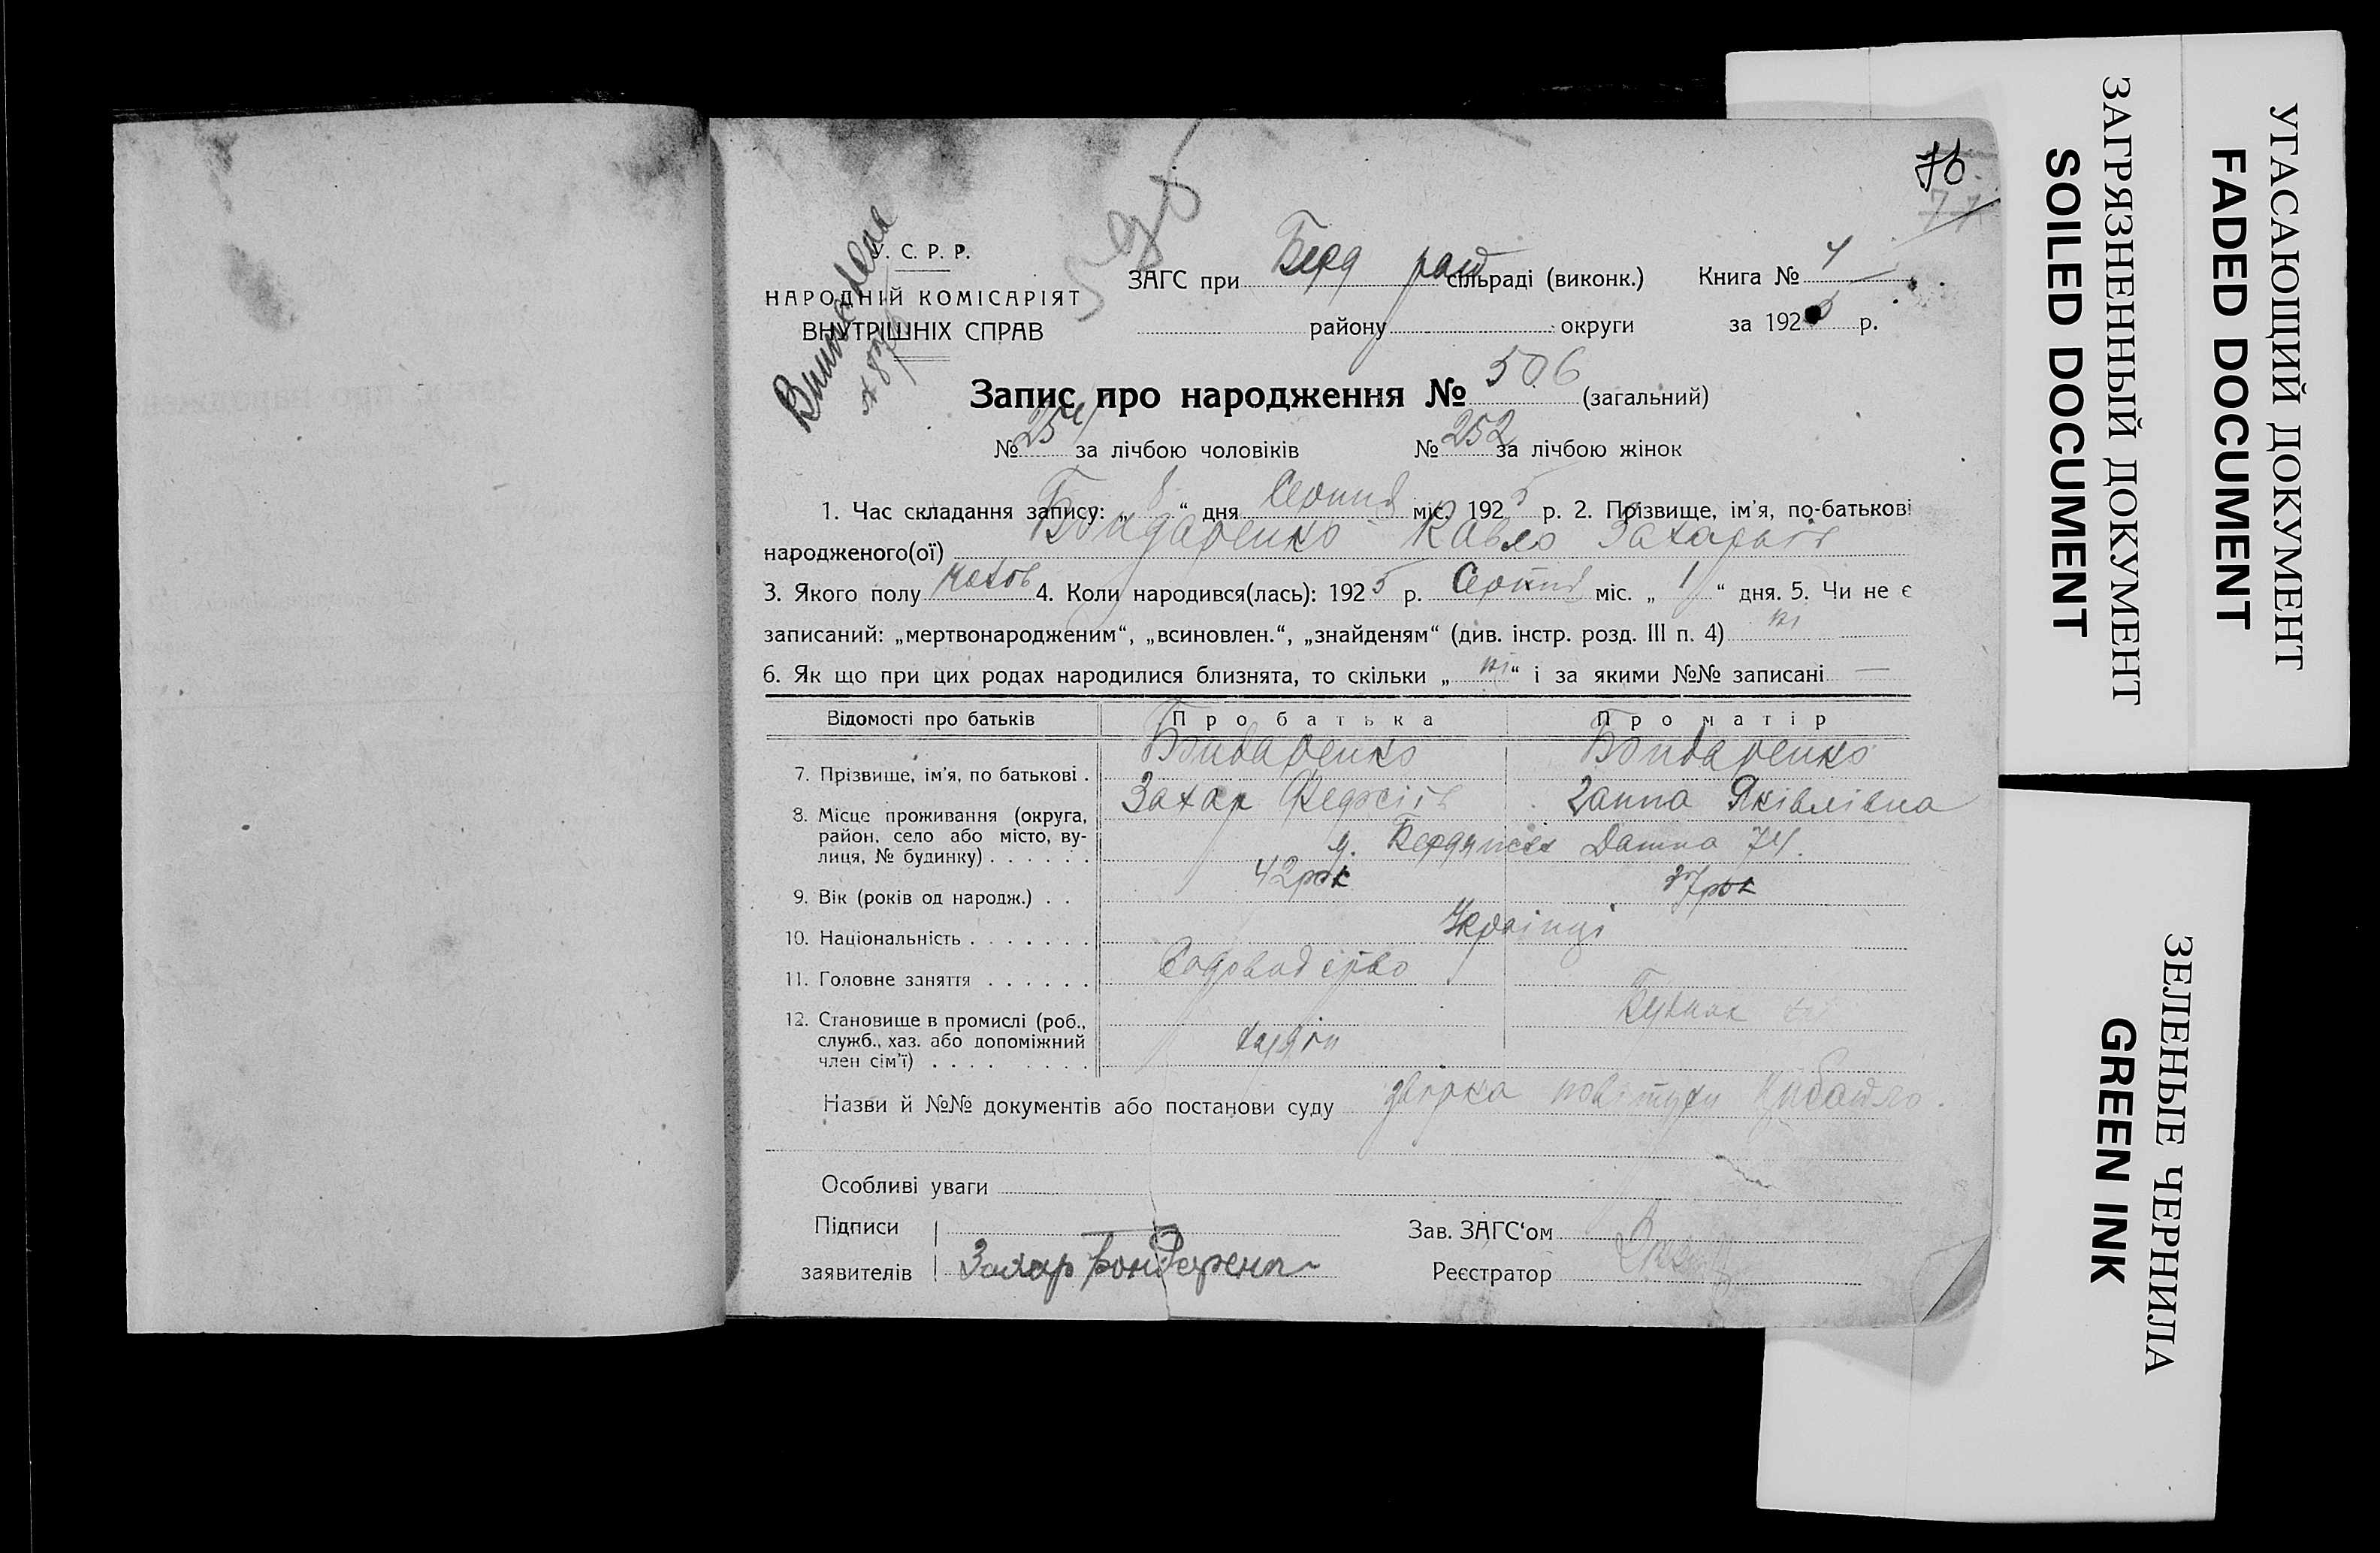 76
77
У. С. Р. Р.
НАРОДНІЙ КОМІСАРІЯТ
ВНУТРІШНІХ СПРАВ
ЗАГС при Берд рай сільраді (виконк.) Книга № 4
району округи за 192 р.
Запис про народження № 506 (загальний)
№ 254 за лічбою чоловіків № 252 за лічбою жінок
1. Час складання запису: „ 8 “ дня Серпня міс. 192 5 р. 2. Прізвище, ім'я, по-батькові
народженого(ої) Бондаренко Павло Захарьів
3. Якого полу 4. Коли народився(лась): 192 5 р. Серпня міс. „ 1 “ дня. 5. Чи не є
записаний: „мертвонародженим“, „всиновлен.“, „знайденям“ (див. інстр. розд. III п. 4) ні
6. Як що при цих родах народилися близнята, то скільки „ ні “ і за якими №№ записані —
Відомості про батьків Про батька Про матір
7. Прізвище, ім'я, по батькові . Бондаренко Бондаренко
Захар Ганна Яківлівна
8. Місце проживання (округа,
район, село або місто, ву-
лиця, № будинку) . . . . . . м. Бердянськ 74.
9. Вік (років од народж.) . . 42 рок 37 рок
10. Національність . . . . . . . Українці
11. Головне заняття . . . . . . Садовод ство
12. Становище в промислі (роб.,
служб., хаз. або допоміжний
член сім'ї) . . . . . . . . .
Назви й №№ документів або постанови суду довідка повітухи
Особливі уваги
Підписи
заявителів Захар Бондаренко
Зав. ЗАГС'ом
Реєстратор
УГАСАЮЩИЙ ДОКУМЕНТ
FADED DOCUMENT
ЗАГРЯЗНЕННЫЙ ДОКУМЕНТ
SOILED DOCUMENT
ЗЕЛЕНЫЕ ЧЕРНИЛА
GREEN INK